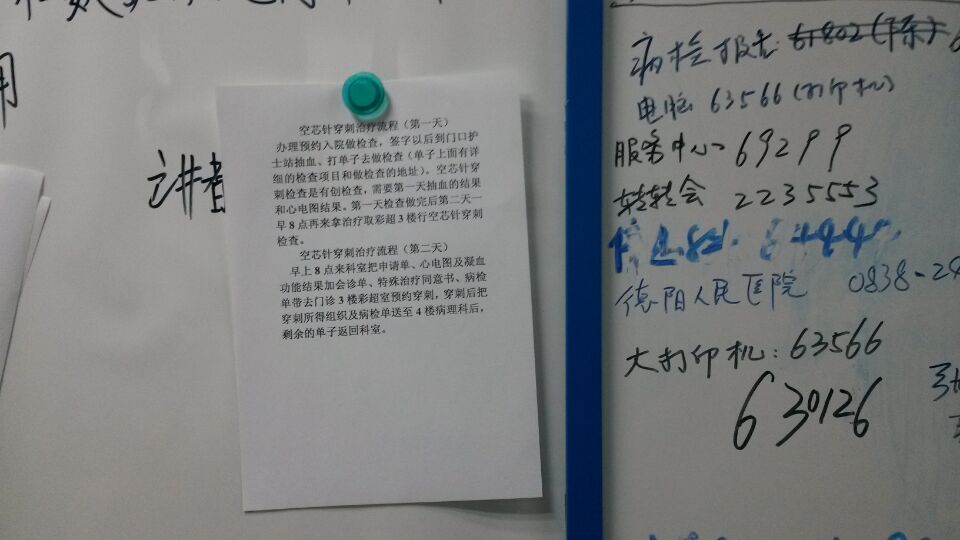 用
讲者
空芯针穿刺治疗流程（第一天）
办理预约入院做检查，签字以后到门口护
士站抽血、打单子去做检查（单子上面有详
细的检查项目和做检查的地址）。空芯针穿
刺检查是有创检查，需要第一天抽血的结果
和心电图结果。第一天检查做完后第二天一
早 8 点再来拿治疗取彩超 3 楼行空芯针穿刺
检查。
空芯针穿刺治疗流程（第二天）
早上 8 点来科室把申请单、心电图及凝血
功能结果加会诊单、特殊治疗同意书、病检
单带去门诊 3 楼彩超室预约穿刺，穿刺后把
穿刺所得组织及病检单送至 4 楼病理科后，
剩余的单子返回科室。
病检报告:
电脑 63566(打印机)
服务中心 69299
转转会 2235553
德阳人民医院 0838-24
大打印机: 63566
630126